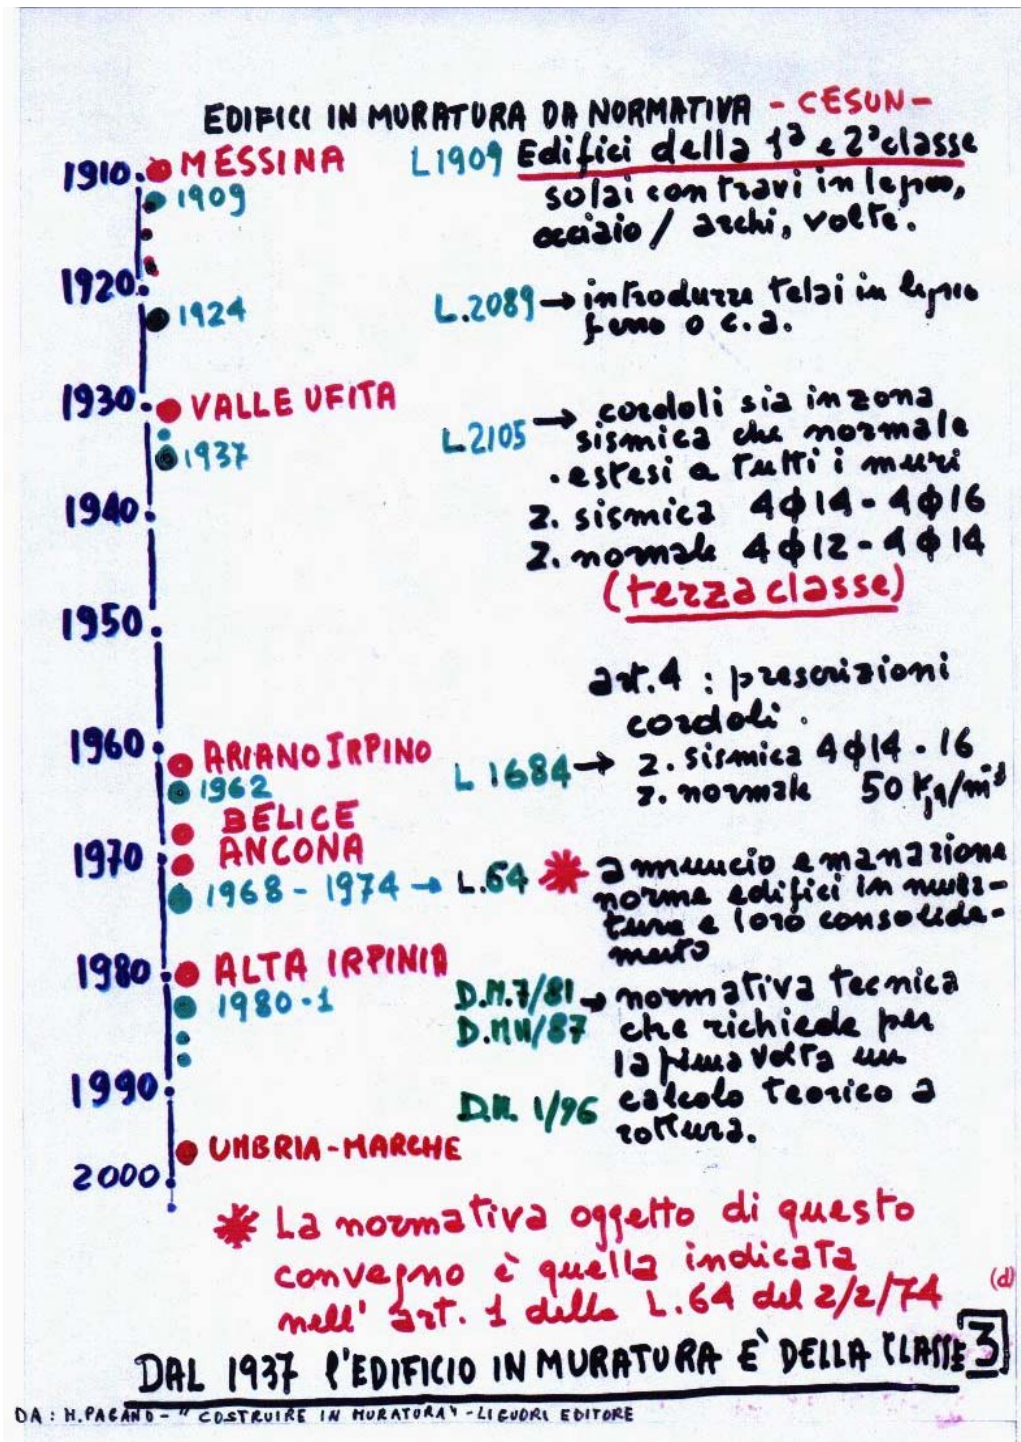 EDIFICI IN MURATURA DA NORMATIVA - CESUN -
1910 MESSINA L1909 Edifici della 1ª e 2ª classe
1909 solai con travi in legno,
acciaio / archi, volte.
1920
1924 L.2089 → introdurre telai in legno
ferro o c.a.
1930 VALLE UFITA
1937 L.2105 → cordoli sia in zona
sismica che normale
. estesi a tutti i muri
1940 z. sismica 4ϕ14 - 4ϕ16
z. normale 4ϕ12 - 4ϕ14
(terza classe)
1950
art.4 : prescrizioni
cordoli .
1960 ARIANO IRPINO
1962 L 1684 → z. sismica 4ϕ14 - 16
z. normale 50 Kg/m³
BELICE
1970 ANCONA
1968 - 1974 → L.64 annuncio emanazione
norme edifici in mura-
tura e loro consolida-
mento
1980 ALTA IRPINIA
1980-1 D.M.7/81 → normativa tecnica
D.M11/87 che richiede per
la prima volta un
1990 D.M. 1/96 calcolo teorico a
rottura.
UMBRIA-MARCHE
2000
La normativa oggetto di questo
convegno è quella indicata
nell' art. 1 della L.64 del 2/2/74 (d)
DAL 1937 l'EDIFICIO IN MURATURA È DELLA CLASSE 3
DA : M.PAGANO - " COSTRUIRE IN MURATURA" - LIGUORI EDITORE